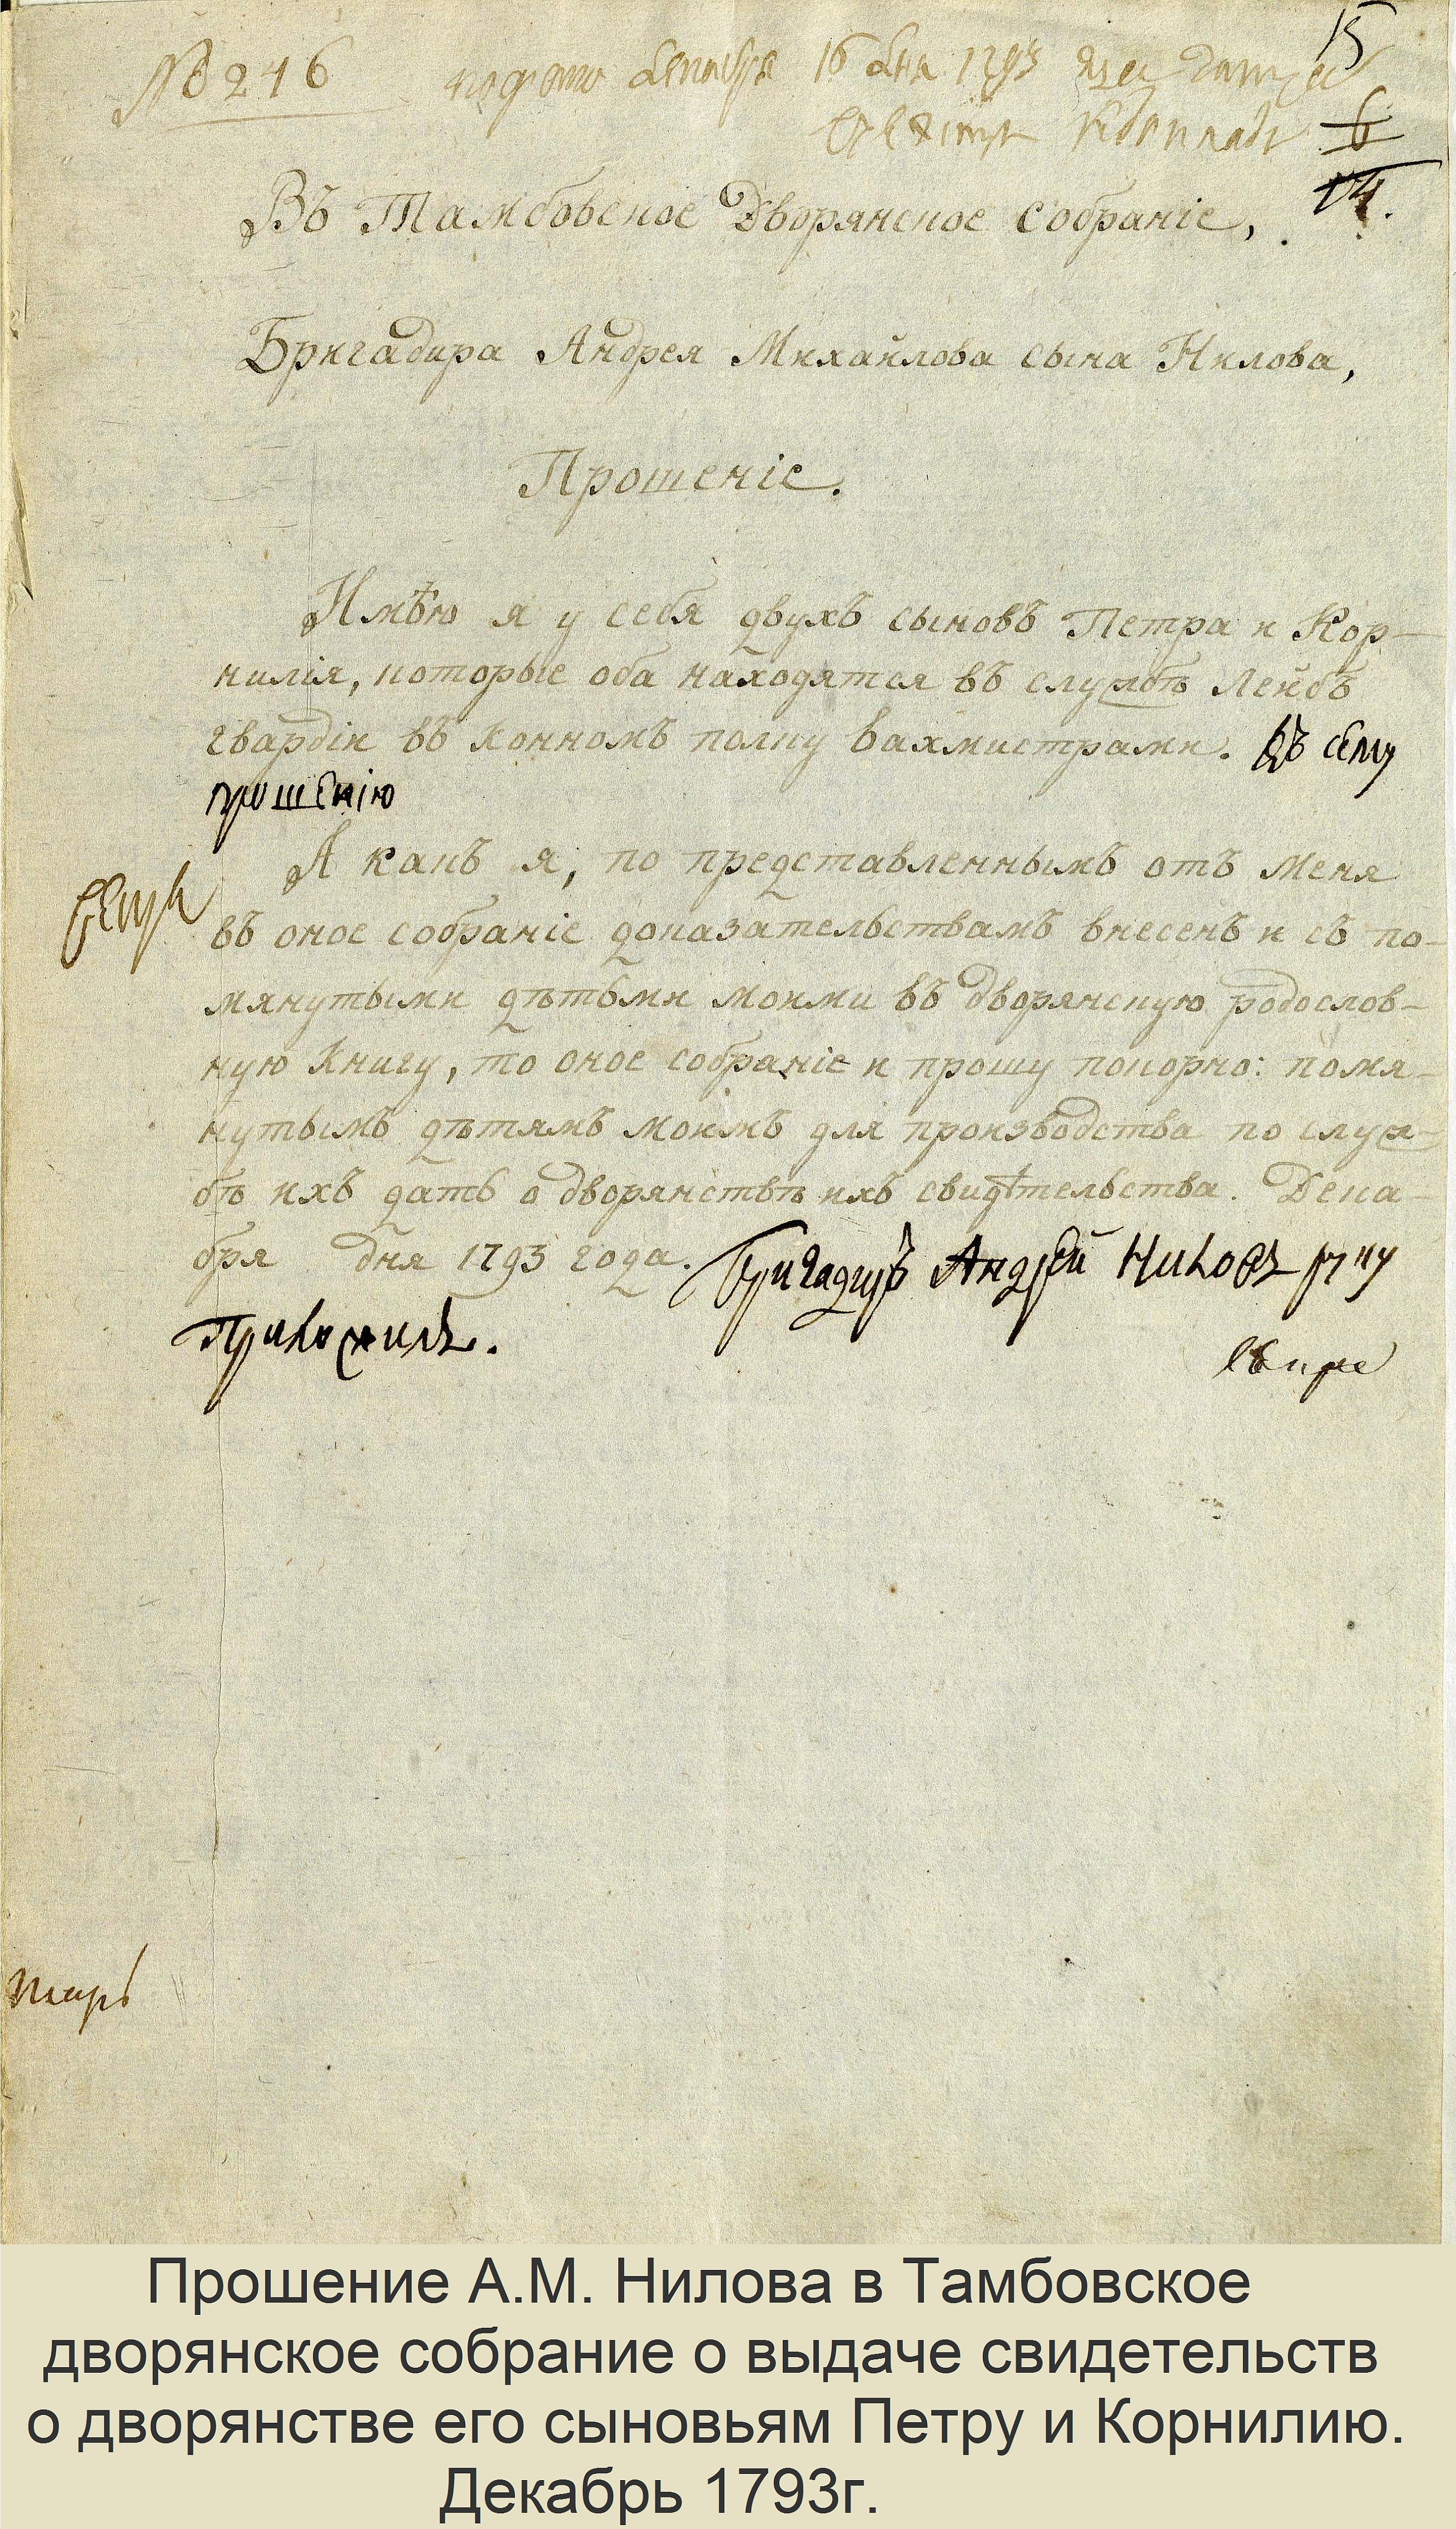 № 246 подано декабря 16 дня 1793 15
6
14.
Въ Тамбовское Дворянское собраніе,
Бригадира Андрея Михайлова сына Нилова,
Прошеніе.
Имѣю я у себя двухъ сыновъ Петра и Кор-
нилія, которые оба находятся въ службѣ Лейбъ
гвардіи въ конномъ полку вахмистрами. Къ сему
прошенію
А какъ я, по представленнымъ отъ меня
въ оное собраніе доказательствамъ внесенъ и съ по-
мянутыми дѣтьми моими въ дворянскую родослов-
ную книгу, то оное собраніе и прошу покорно: помя-
нутымъ дѣтямъ моимъ для произвовдства по служ-
бѣ ихъ дать о дворянствѣ ихъ свидѣтельства. Дека-
бря дня 1793 года. Бригадиръ Андрей Ниловъ руку
Приложилъ.
Прошение А.М. Нилова в Тамбовское
дворянское собрание о выдаче свидетельств
о дворянстве его сыновьям Петру и Корнилию.
Декабрь 1793г.